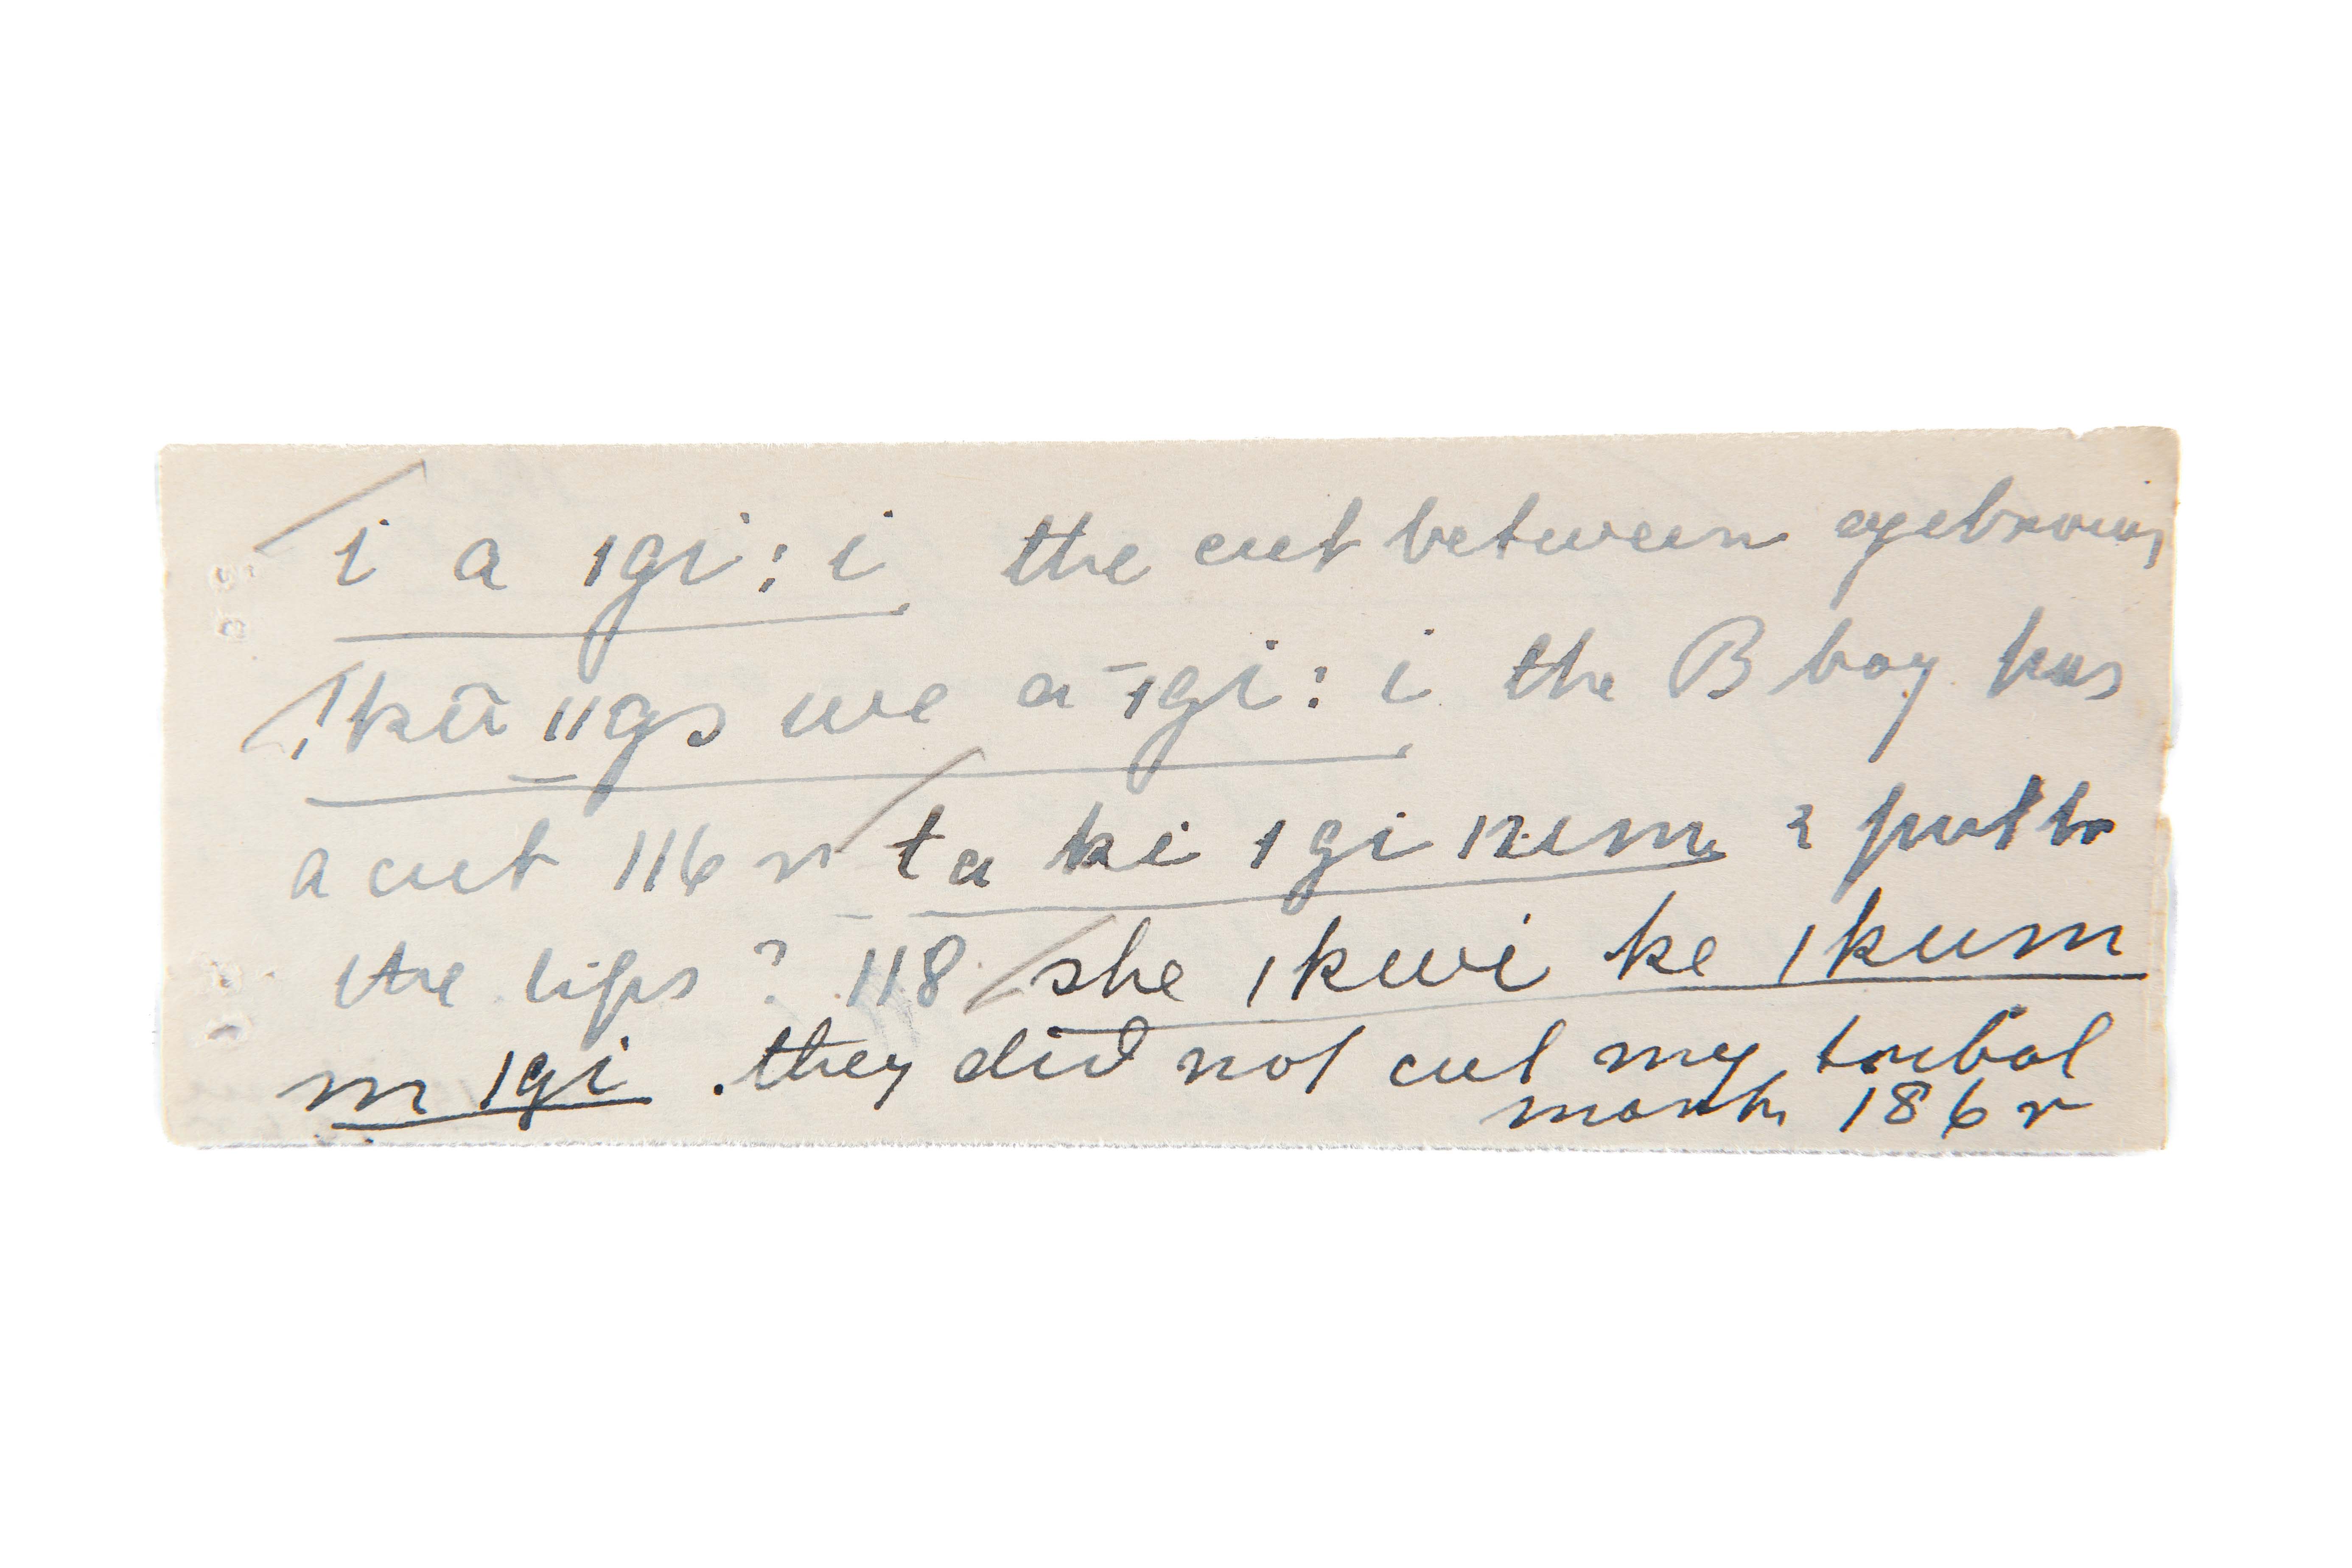 i a ǀgi : i the cut between eyebrows
!kū ǁgs we a ‾ǀgi : i the B boy has
a cut 116 r ta ki ǀgi ǀnum ? put to
the lips ? 118 she ǀkwi ke ǀkum
m ǀgi . they did not cut my tribal
mark 186 r